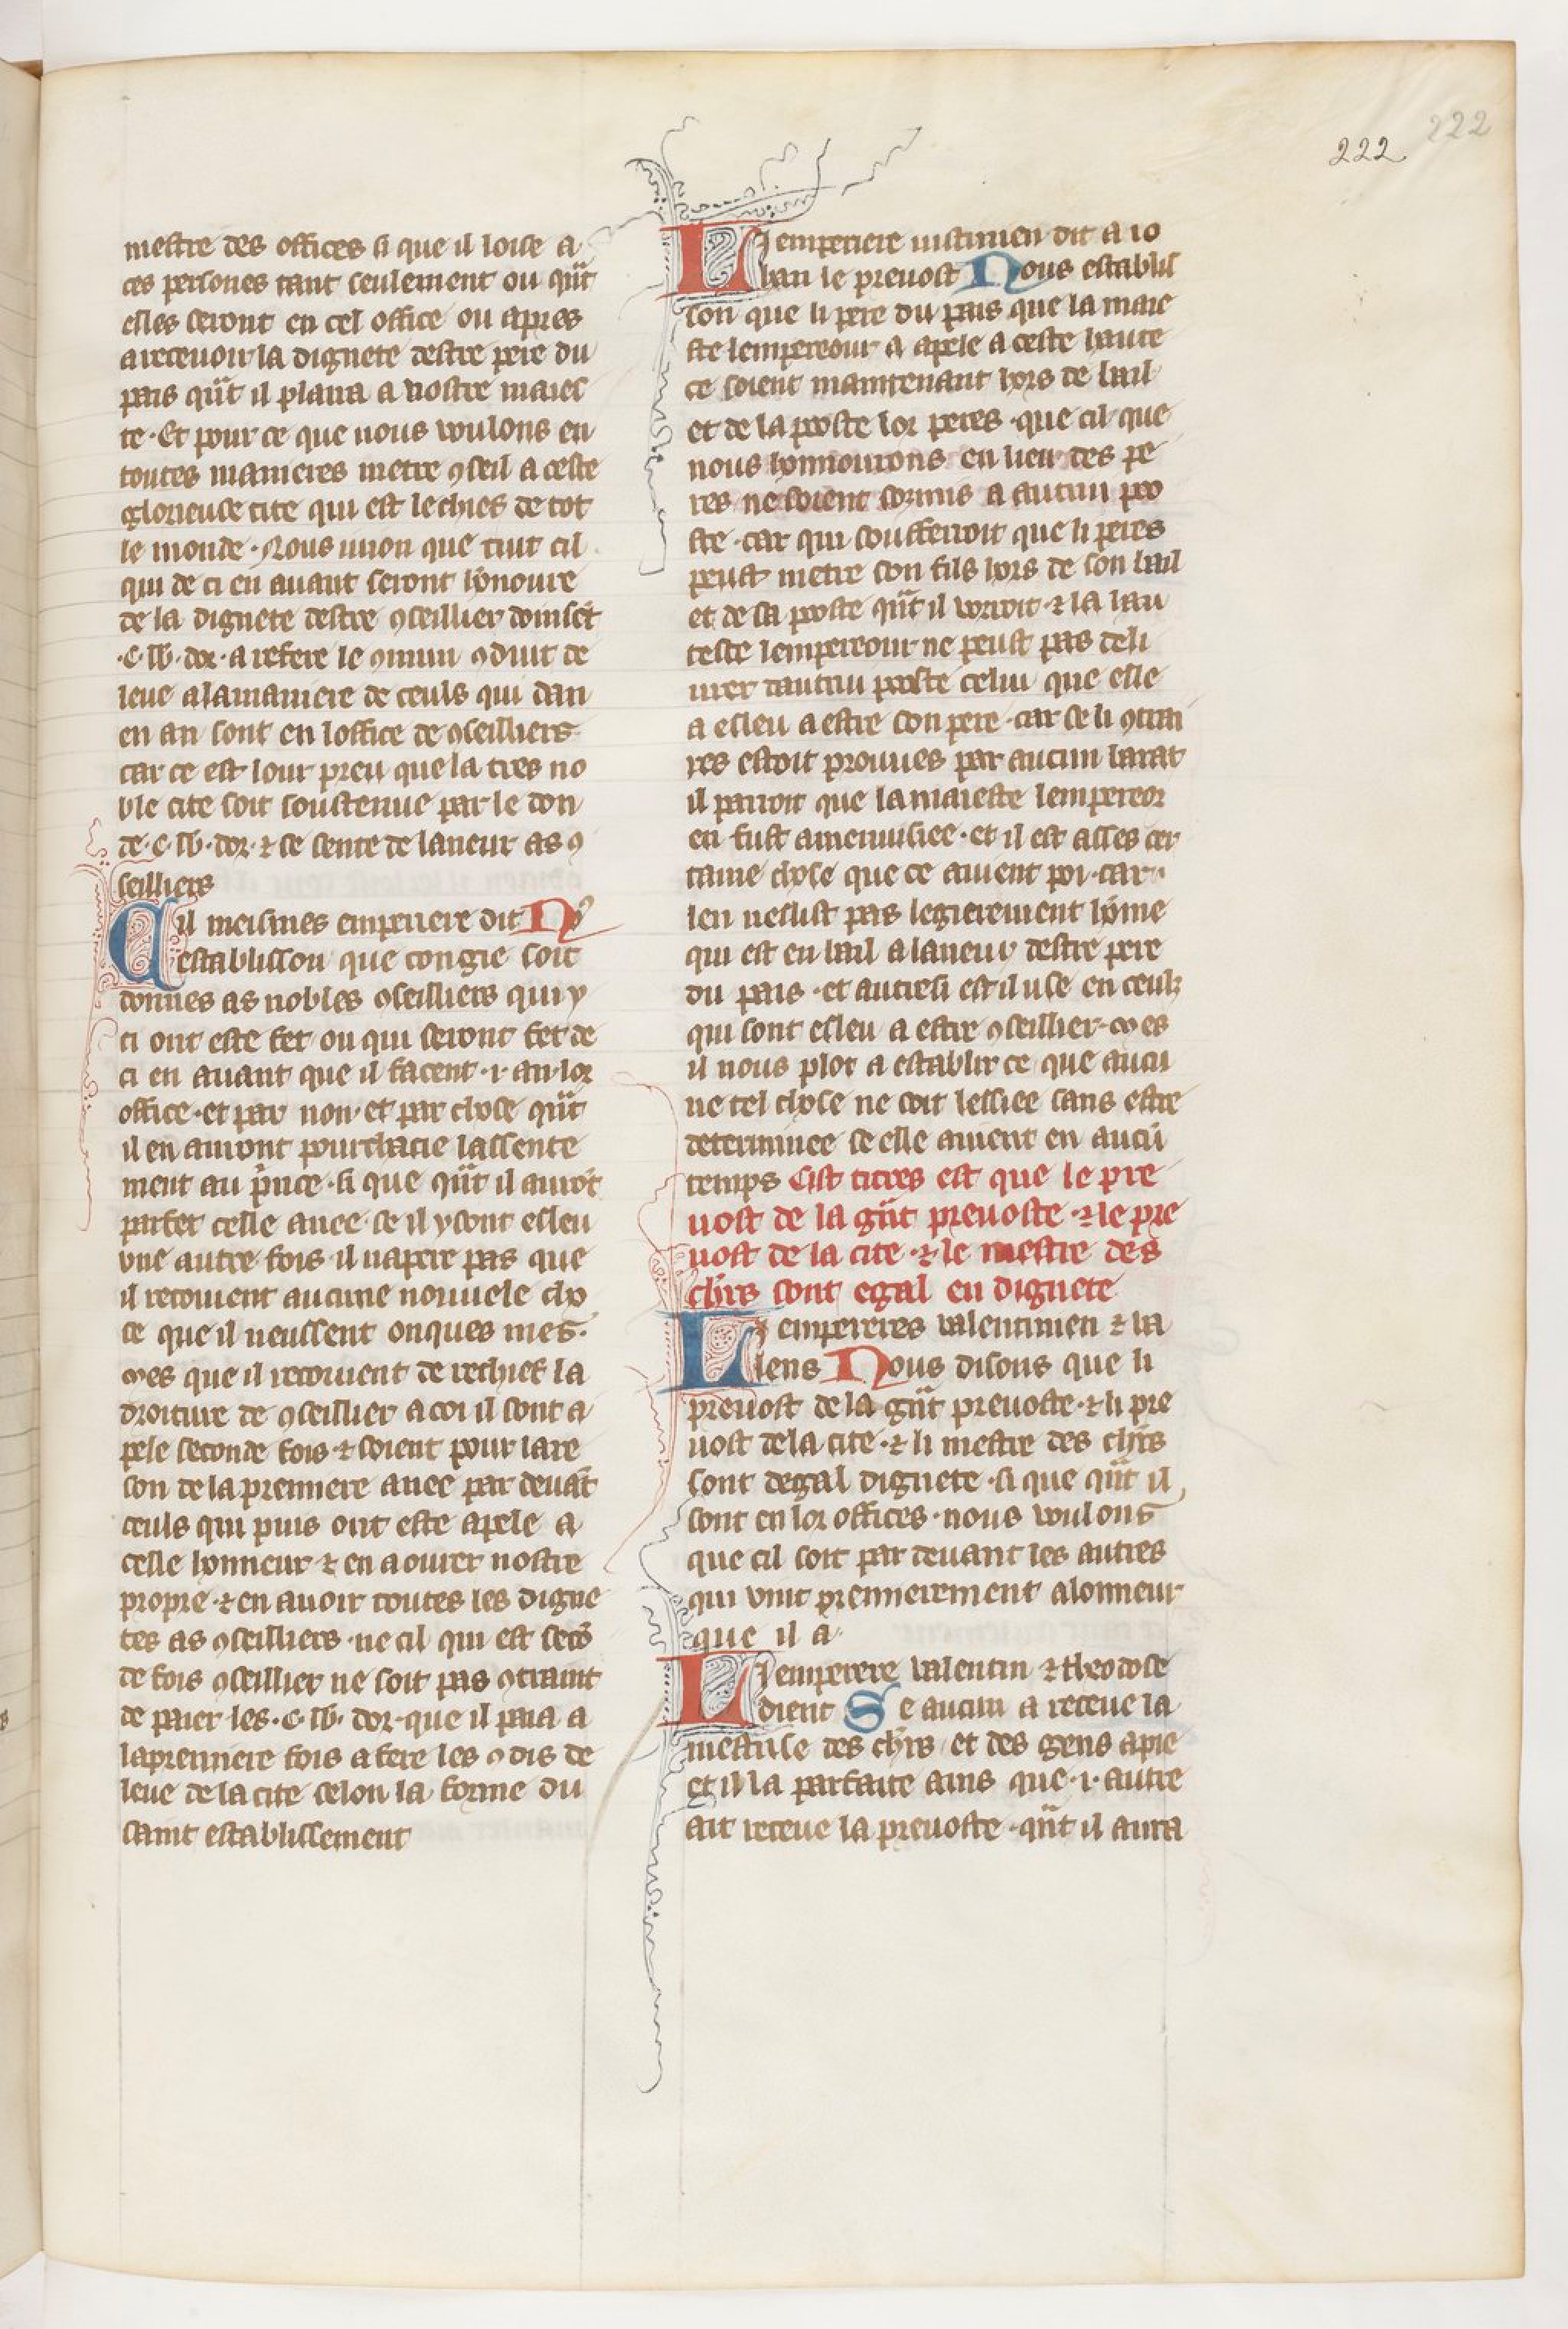 222
222
mestre des offices si que il loise a
ces persones tant seulement ou qūt
elles seront en cel office ou apres
a recevoir la dignete destre pere du
pais qūt il plaira a nostre maies
te · Et pour ce que nous voulons en
toutes manieres metre ꝯseil a ceste
glorieuse cite qui est le chies de tot
le monde · Nous uuon que tuit cil
qui de ci en auant seront honoure
de la dignete destre ꝯseillier doinsēt
· c · lb · dor · a refere le ꝯmun ꝯduit de
leue a la maniere de ceuls qui dan
en an sont en loffice de ꝯseilliers
car ce est lour preu que la tres no
ble cite soit soustenue par le don
de · c · lb · dor · ⁊ se sente de laneur as ꝯ
seilliers
Cil meismes emperiere dit No9
establisson que congie soit
donnes as nobles ꝯseilliers qui y
ci ont este fet ou qui seront fet de
ci en auant que il facent · i · an lor
office · et par non · et par chose qūt
il en auront pourchacie lassente
ment au p̄nce · si que qūt il aurōt
parfet celle anee · se il y sont esleu
vne autre fois · il napere pas que
il recoiuent aucune nouuele cho
se que il neussent onques mes ·
mes que il recoiuent de rechief la
droiture de ꝯseillier a coi il sont a
pele seconde fois · ⁊ soient pour la re
son de la premiere anee par deuāt
ceuls qui puis ont este apele a
celle honneur ⁊ en aourer nostre
propre · ⁊ en auoir toutes les digne
tes as ꝯseilliers · ne cil qui est secō
de fois ꝯseillier ne soit pas ꝯtraint
de paier les · c · lb · dor · que il paia a
la premiere fois a fere les ꝯdis de
leue de la cite selon la forme du
saint establissement
Li emperiere iustinien dit a io
han le preuost Nous establis
son que li pere du pais que la maie
ste lempereour a apele a ceste haute
ce soient maintenant hors de bail
et de la poste lor peres · que cil que
nous honnourons en lieu des pe
res ne soient sozmis a autrui po
ste · car qui soufferroit que li peres
peust metre son fils hors de son bail
et de sa poste qūt il vorroit · ⁊ la hau
tesce lempereour ne peust pas deli
urer dautrui poste celui que elle
a esleu a estre son pere · car se li ꝯtrai
res estoit prouues par aucun barat
il parroit que la maieste lempereor
en fust amenuisiee · et il est asses cer
taine chose que ce auient poi · car
len neslist pas legierement home
qui est en bail a laneur destre pere
du pais · et autresi est il use en ceulz
qui sont esleu a estre ꝯseillier · mes
il nous plot a establir ce que aucu
ne tel chose ne soit lessiee sans estre
determinee se elle auient en aucū
temps Cist titres est que le pre
uost de la gūt preuoste · ⁊ le pre
uost de la cite · ⁊ le mestre des
chr̄s sont egal en dignete
Li empereres valentinien ⁊ va
lens Nous disons que li
preuost de la gūt preuoste · ⁊ li pre
uost de la cite · ⁊ li mestre des chr̄s
sont degal dignete · si que qūt il
sont en lor offices · nous voulons
que cil soit par deuant les autres
qui vint premierement a lonneur
que il a ·
Li emperere valentin ⁊ theodose
dient Se aucun a receue la
mestrise des chr̄s et des gens a pie
et il la parfaite ains que · i · autre
ait receue la preuoste · qūt il aura